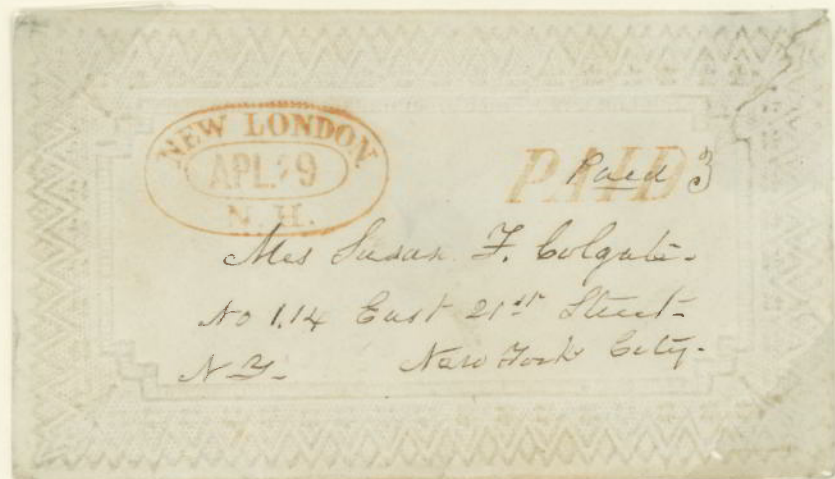 NEW LONDON
APL 29
N.H.
PAID
Paid 3
Mrs Susan F. Colgate.
No 114 East 21st Street
N.Y. New York City.